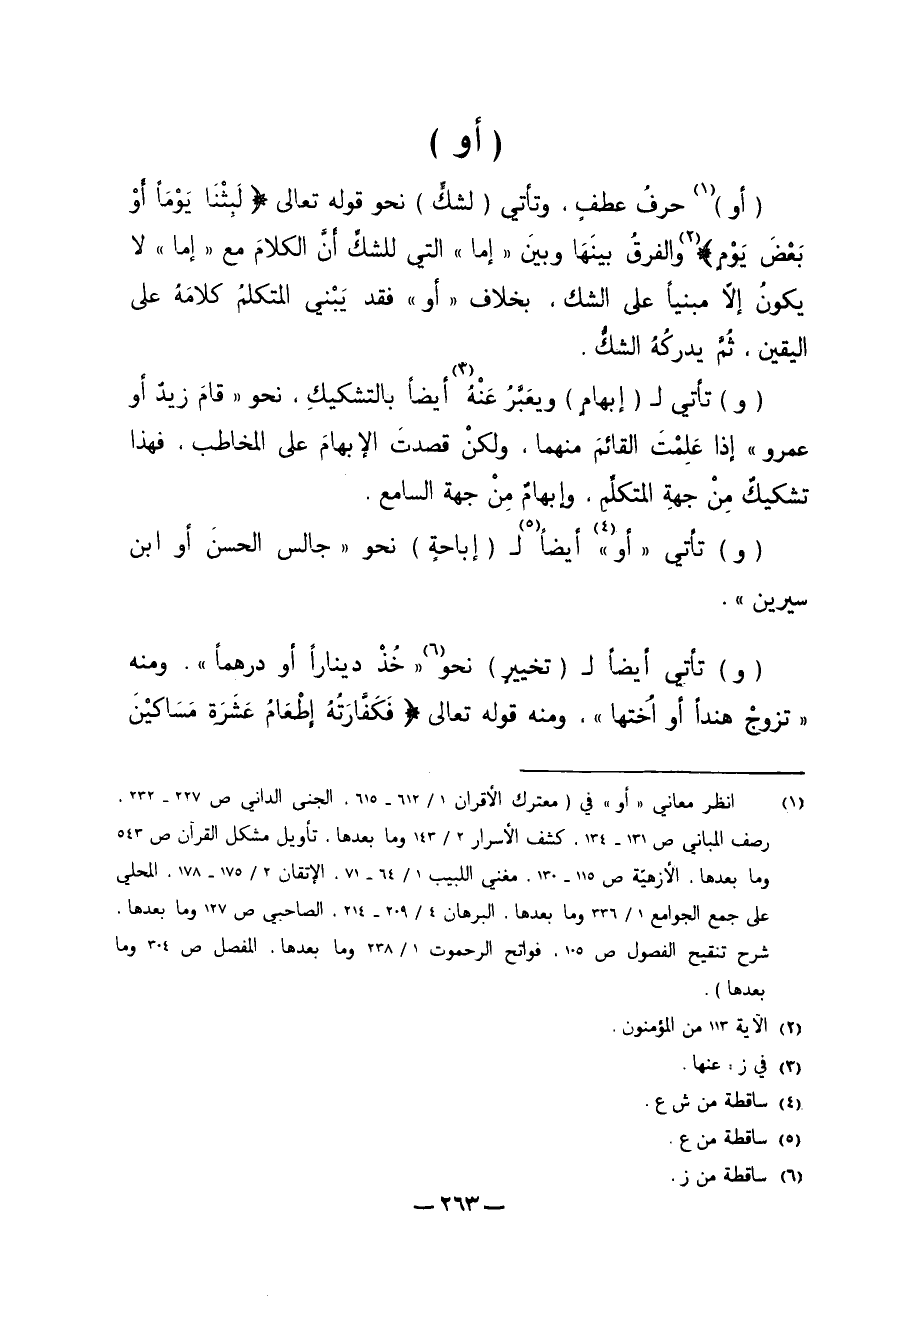 ( أو )
( أو )(١) حرفُ عطفٍ ، وتأتي ( لشكٍّ ) نحو قوله تعالى ﴿ لَبِثْنَا يَوْمَاً أَوْ
بَعْضَ يَوْمٍ﴾(٢) والفرقُ بينَهَا وبينَ « إما » التي للشكِّ أنَّ الكلامَ مع « إما » لا
يكونُ إلاّ مبنياً على الشك ، بخلاف « أو » فقد يَبْني المتكلمُ كلامَهُ على
اليقين ، ثُمَّ يدركُهُ الشكُّ .
( و ) تأتي لـ ( إبهام ) ويعَبَّرُ عَنْهُ(٣) أيضاً بالتشكيكِ ، نحو « قامَ زيدٌ أو
عمرو » إذا عَلِمْتَ القائمَ منهما ، ولكنْ قصدتَ الإبهامَ على المخاطب ، فهذا
تشكيكٌ مِنْ جهةِ المتكلِّمِ ، وإبهامٌ مِنْ جهة السامع .
( و ) تأتي « أو»(٤) أيضاً(٥) لـ ( إباحةٍ ) نحو « جالس الحسنَ أو ابن
سيرين » .
( و ) تأتي أيضاً لـ ( تخييرٍ ) نحو(٦) « خُذْ ديناراً أو درهماً » . ومنه
« تزوجْ هنداً أو أُختها » ، ومنه قوله تعالى ﴿ فَكَفَّارَتُهُ إطْعَامُ عَشَرَةِ مَسَاكِيْنَ
(١) انظر معاني « أو » في ( معترك الأقران ١ / ٦١٢ ـ ٦١٥ ، الجنى الداني ص ٢٢٧ ـ ٢٣٢ ،
رصف المباني ص ١٣١ ـ ١٣٤ ، كشف الأسرار ٢ / ١٤٣ وما بعدها ، تأويل مشكل القرآن ص ٥٤٣
وما بعدها ، الأزهيّة ص ١١٥ ـ ١٣٠ ، مغني اللبيب ١ / ٦٤ ـ ٧١ ، الإتقان ٢ / ١٧٥ ـ ١٧٨ ، المحلي
على جمع الجوامع ١ / ٣٣٦ وما بعدها ، البرهان ٤ / ٢٠٩ ـ ٢١٤ ، الصاحبي ص ١٢٧ وما بعدها ،
شرح تنقيح الفصول ص ١٠٥ ، فواتح الرحموت ١ / ٢٣٨ وما بعدها ، المفصل ص ٣٠٤ وما
بعدها ) .
(٢) الآية ١١٣ من المؤمنون .
(٣) في ز : عنها .
(٤) ساقطة من ش ع .
(٥) ساقطة من ع .
(٦) ساقطة من ز .
— ٢٦٣ —